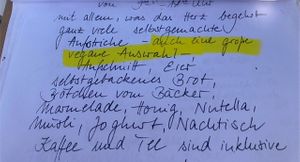 von
mit allem, was das Herz begehrt
ganz viele selbstgemachte
Aufstriche auch eine große
vegane Auswahl!
Aufschnitt, Eier
selbstgebackenes Brot,
Brötchen vom Bäcker,
Marmelade, Honig, Nutella,
Müsli, Joghurt, Nachtisch
Kaffee und Tee sind inklusive